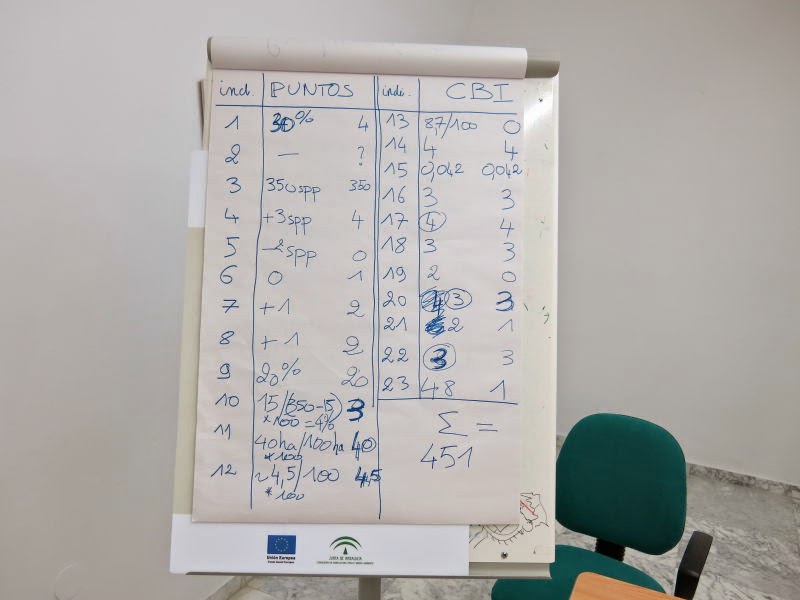 ind. PUNTOS
1 30% 4
2 — ?
3 350 spp 350
4 +3 spp 4
5 -2 spp 0
6 0 1
7 +1 2
8 +1 2
9 20% 20
10 15/(350-15) 3
*100 = 4%
11 40 ha/100 ha 40
*100
12 ~4,5/100 4,5
*100
indi. CBI
13 8,7/100 0
14 4 4
15 0,042 0,042
16 3 3
17 4 4
18 3 3
19 2 0
20 3 3
21 2 1
22 3 3
23 48 1
Σ =
451
Unión Europea
JUNTA DE ANDALUCIA